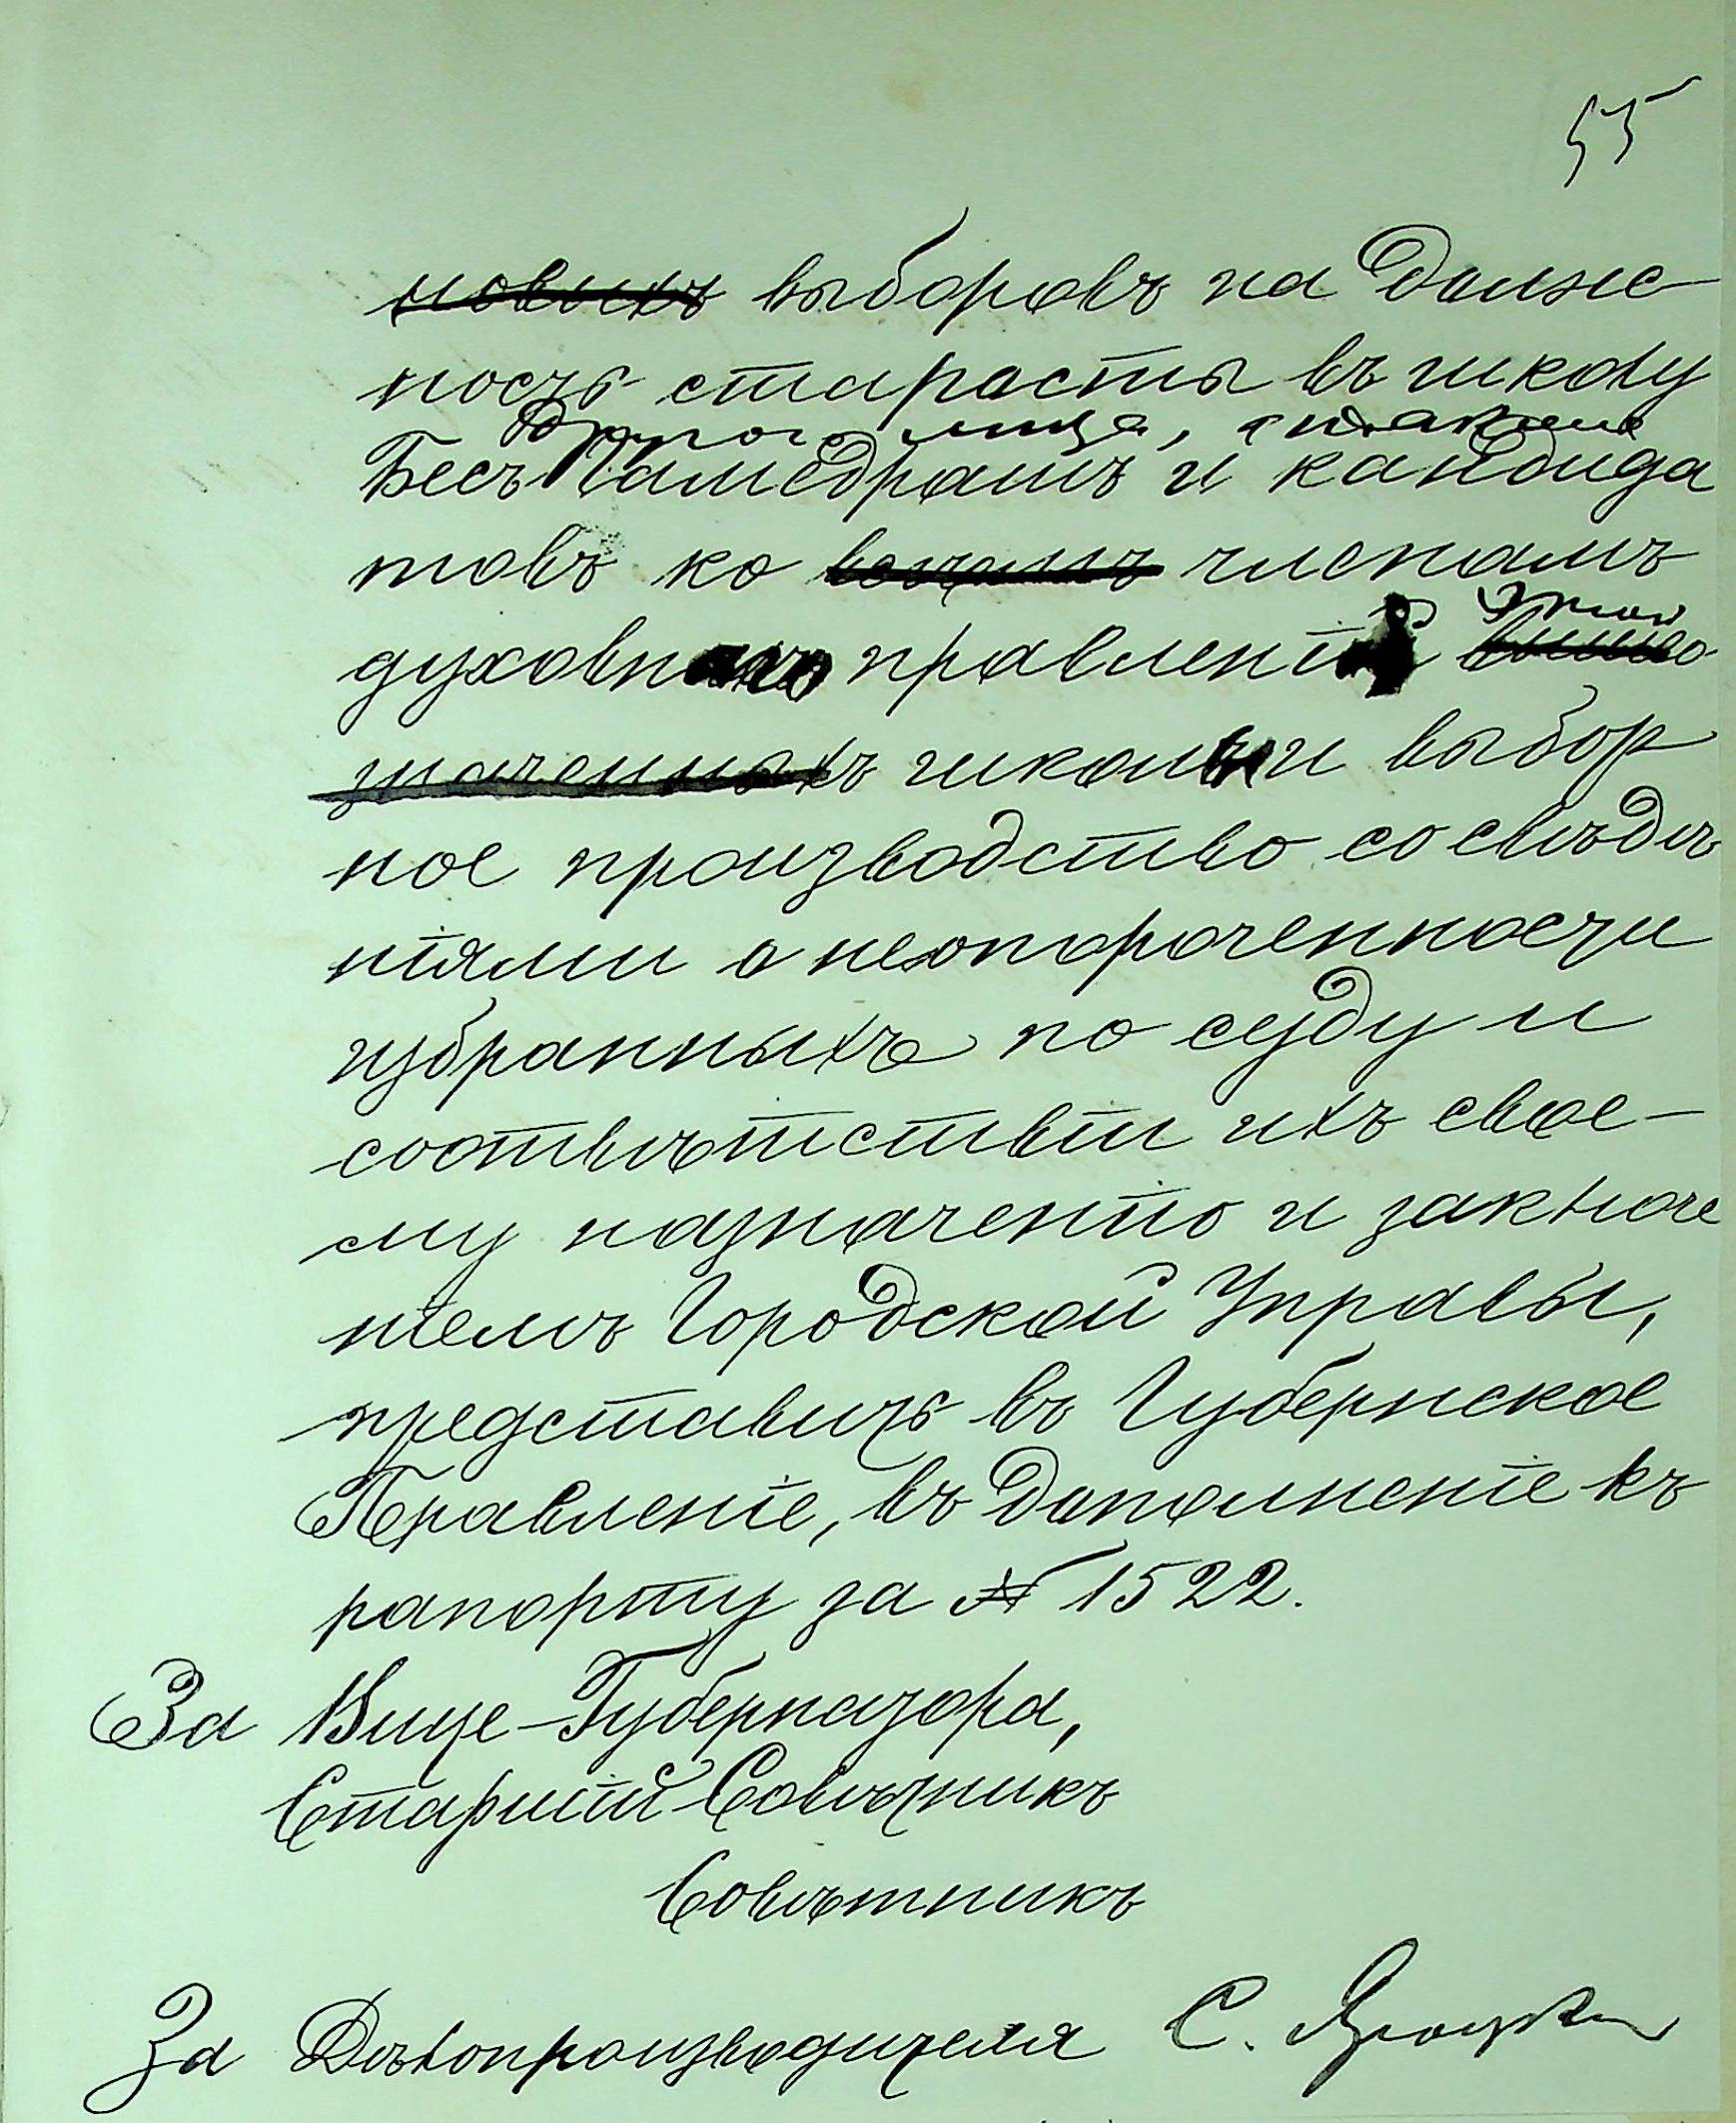 55
новыхъ выборовъ на долж-
ность старосты въ школу
другого лица, а также
Бесъ Гамедрашъ и кандида
товъ ко членамъ
духовн правлені этой
значенныхъ школы и выбор
ное производство со свѣдѣ
ніями о неопороченности
избранныхъ по суду и
соотвѣтствіи ихъ свое-
му назначенію и заключе
ніемъ Городской Управы,
представить въ Губернское
Правленіе, въ дополненіе къ
рапорту за № 1522.
За Вице-Губернатора,
Старшій Совѣтникъ
Совѣтникъ
За Дѣлопроизводителя С.